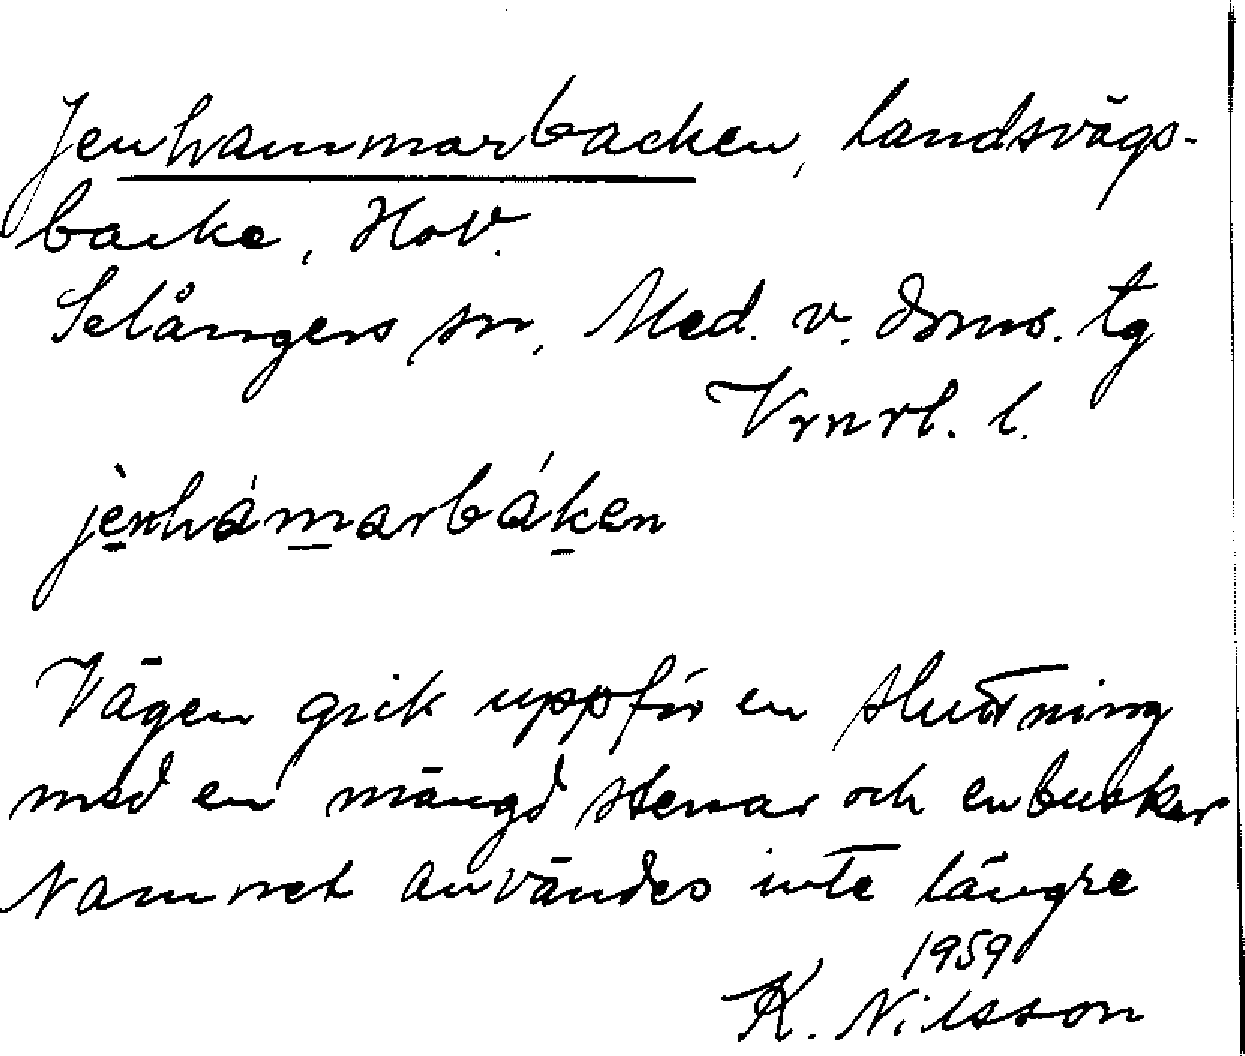 Jenhammarbacken, landsvägs-
backe, Hov.
Selångers sn, Med. v. doms. tg
Vrnrl. l.
jènhámarbáken
Vägen gick uppför en sluttning
med en mängd stenar och enbuskar
Namnet användes inte längre
1959
K. Nilsson